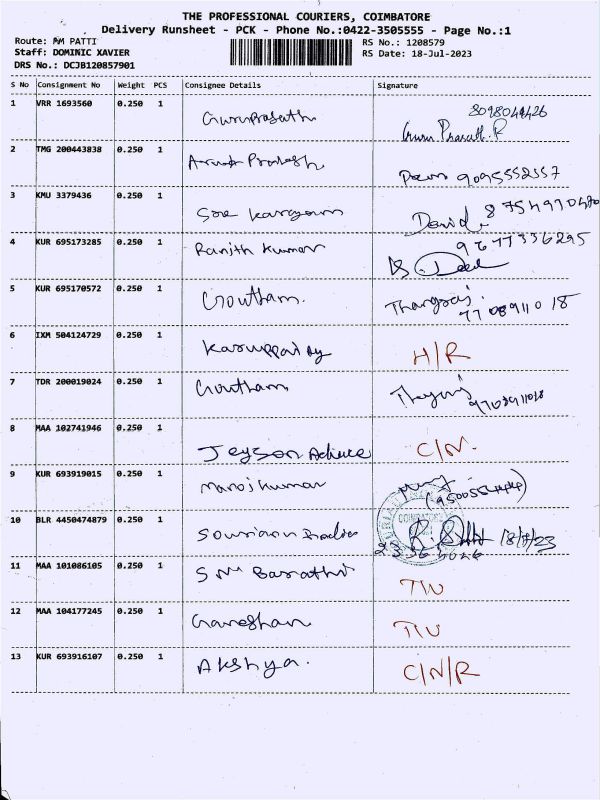 THE PROFESSIONAL COURIERS, COIMBATORE
Delivery Runsheet - PCK - Phone No.:0422-3505555 - Page No.:1
Route: PM PATTI
RS No.: 1208579
Staff: DOMINIC XAVIER
RS Date: 18-Jul-2023
DRS No.: DCJB120857901
S No Consignment No Weight PCS Consignee Details Signature
1 VRR 1693560 0.250 1 Guruprasath 8098044426
Guru Prasath.R
2 TMG 200443838 0.250 1 Prakash 9095552557
3 KMU 3379436 0.250 1 David
4 KUR 695173285 0.250 1 Ranjith Kumar 9677336295
5 KUR 695170572 0.250 1 Goutham. Thangaraj
7708911018
6 IXM 504124729 0.250 1 H/R
7 TDR 200019024 0.250 1 Goutham
8 MAA 102741946 0.250 1 Jeyson C/N.
9 KUR 693919015 0.250 1 Manojkumar
10 BLR 4450474879 0.250 1 18/7/23
11 MAA 101086105 0.250 1 Barathi
12 MAA 104177245 0.250 1 Ganeshan
13 KUR 693916107 0.250 1 Akshya. C/N/R